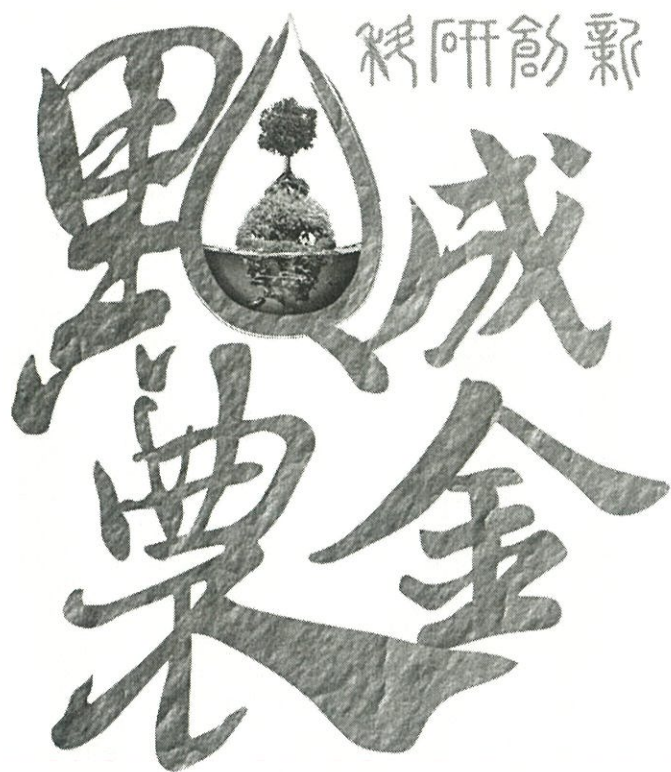 移研創新
點農
成金